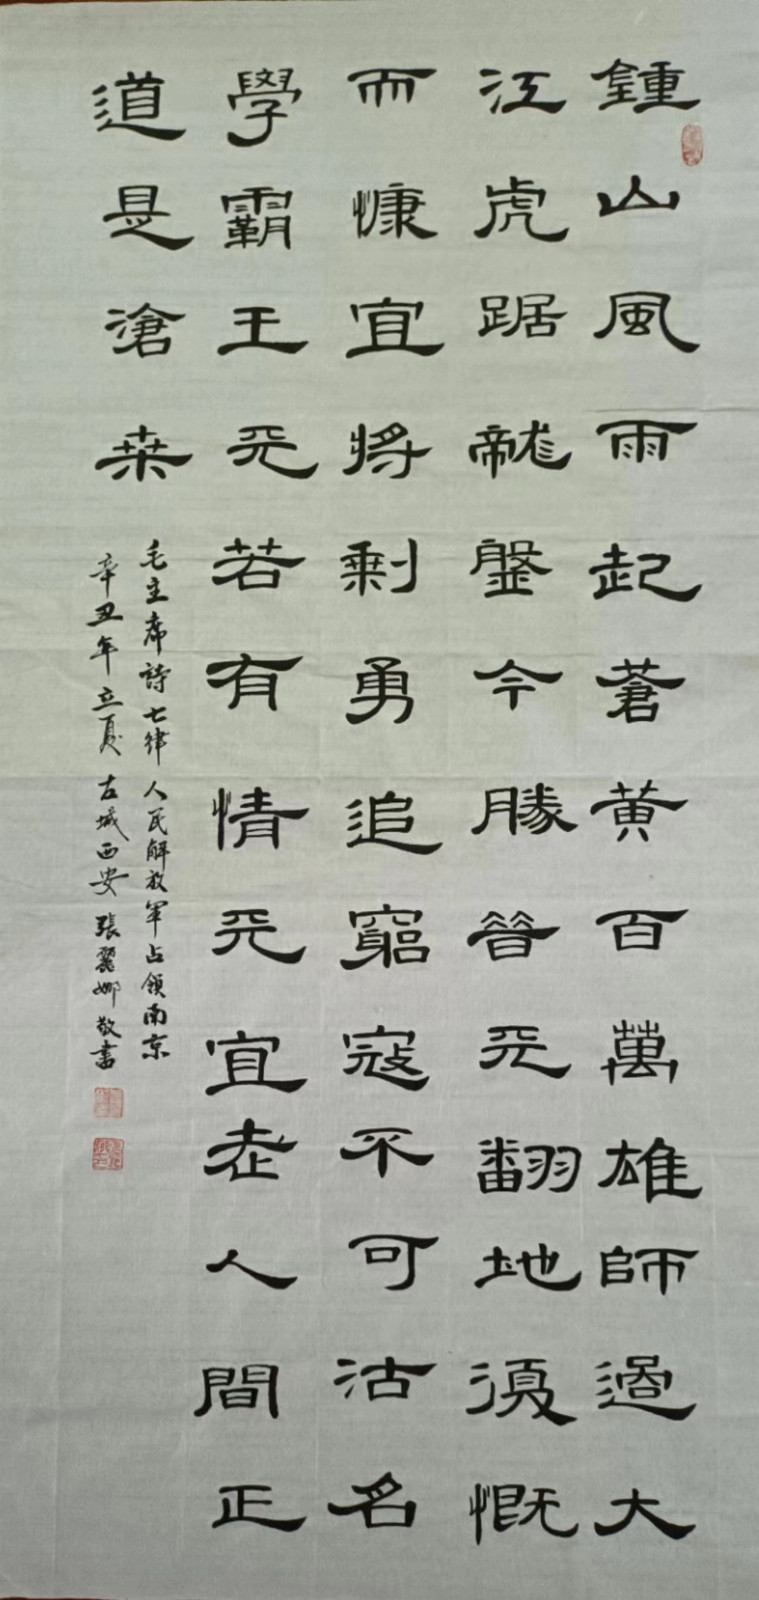 鍾山風雨起蒼黄百萬雄師過大
江虎踞龍盤今勝昔天翻地覆慨
而慷宜將剩勇追窮寇不可沽名
學霸王天若有情天宜老人間正
道是滄桑
毛主席詩七律 人民解放軍占領南京
辛丑年立夏 古城西安 張麗娜敬書